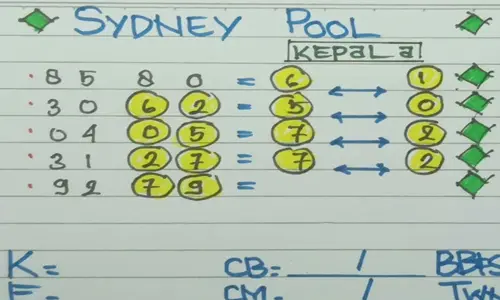 SYDNEY POOL
KEPALA
8 5 8 0 = 6 ↔ 1
3 0 6 2 = 5 ↔ 0
0 4 0 5 = 7 ↔ 2
3 1 2 7 = 7 ↔ 2
9 2 7 9 =
K= CB= / BBFS
E= CM= /